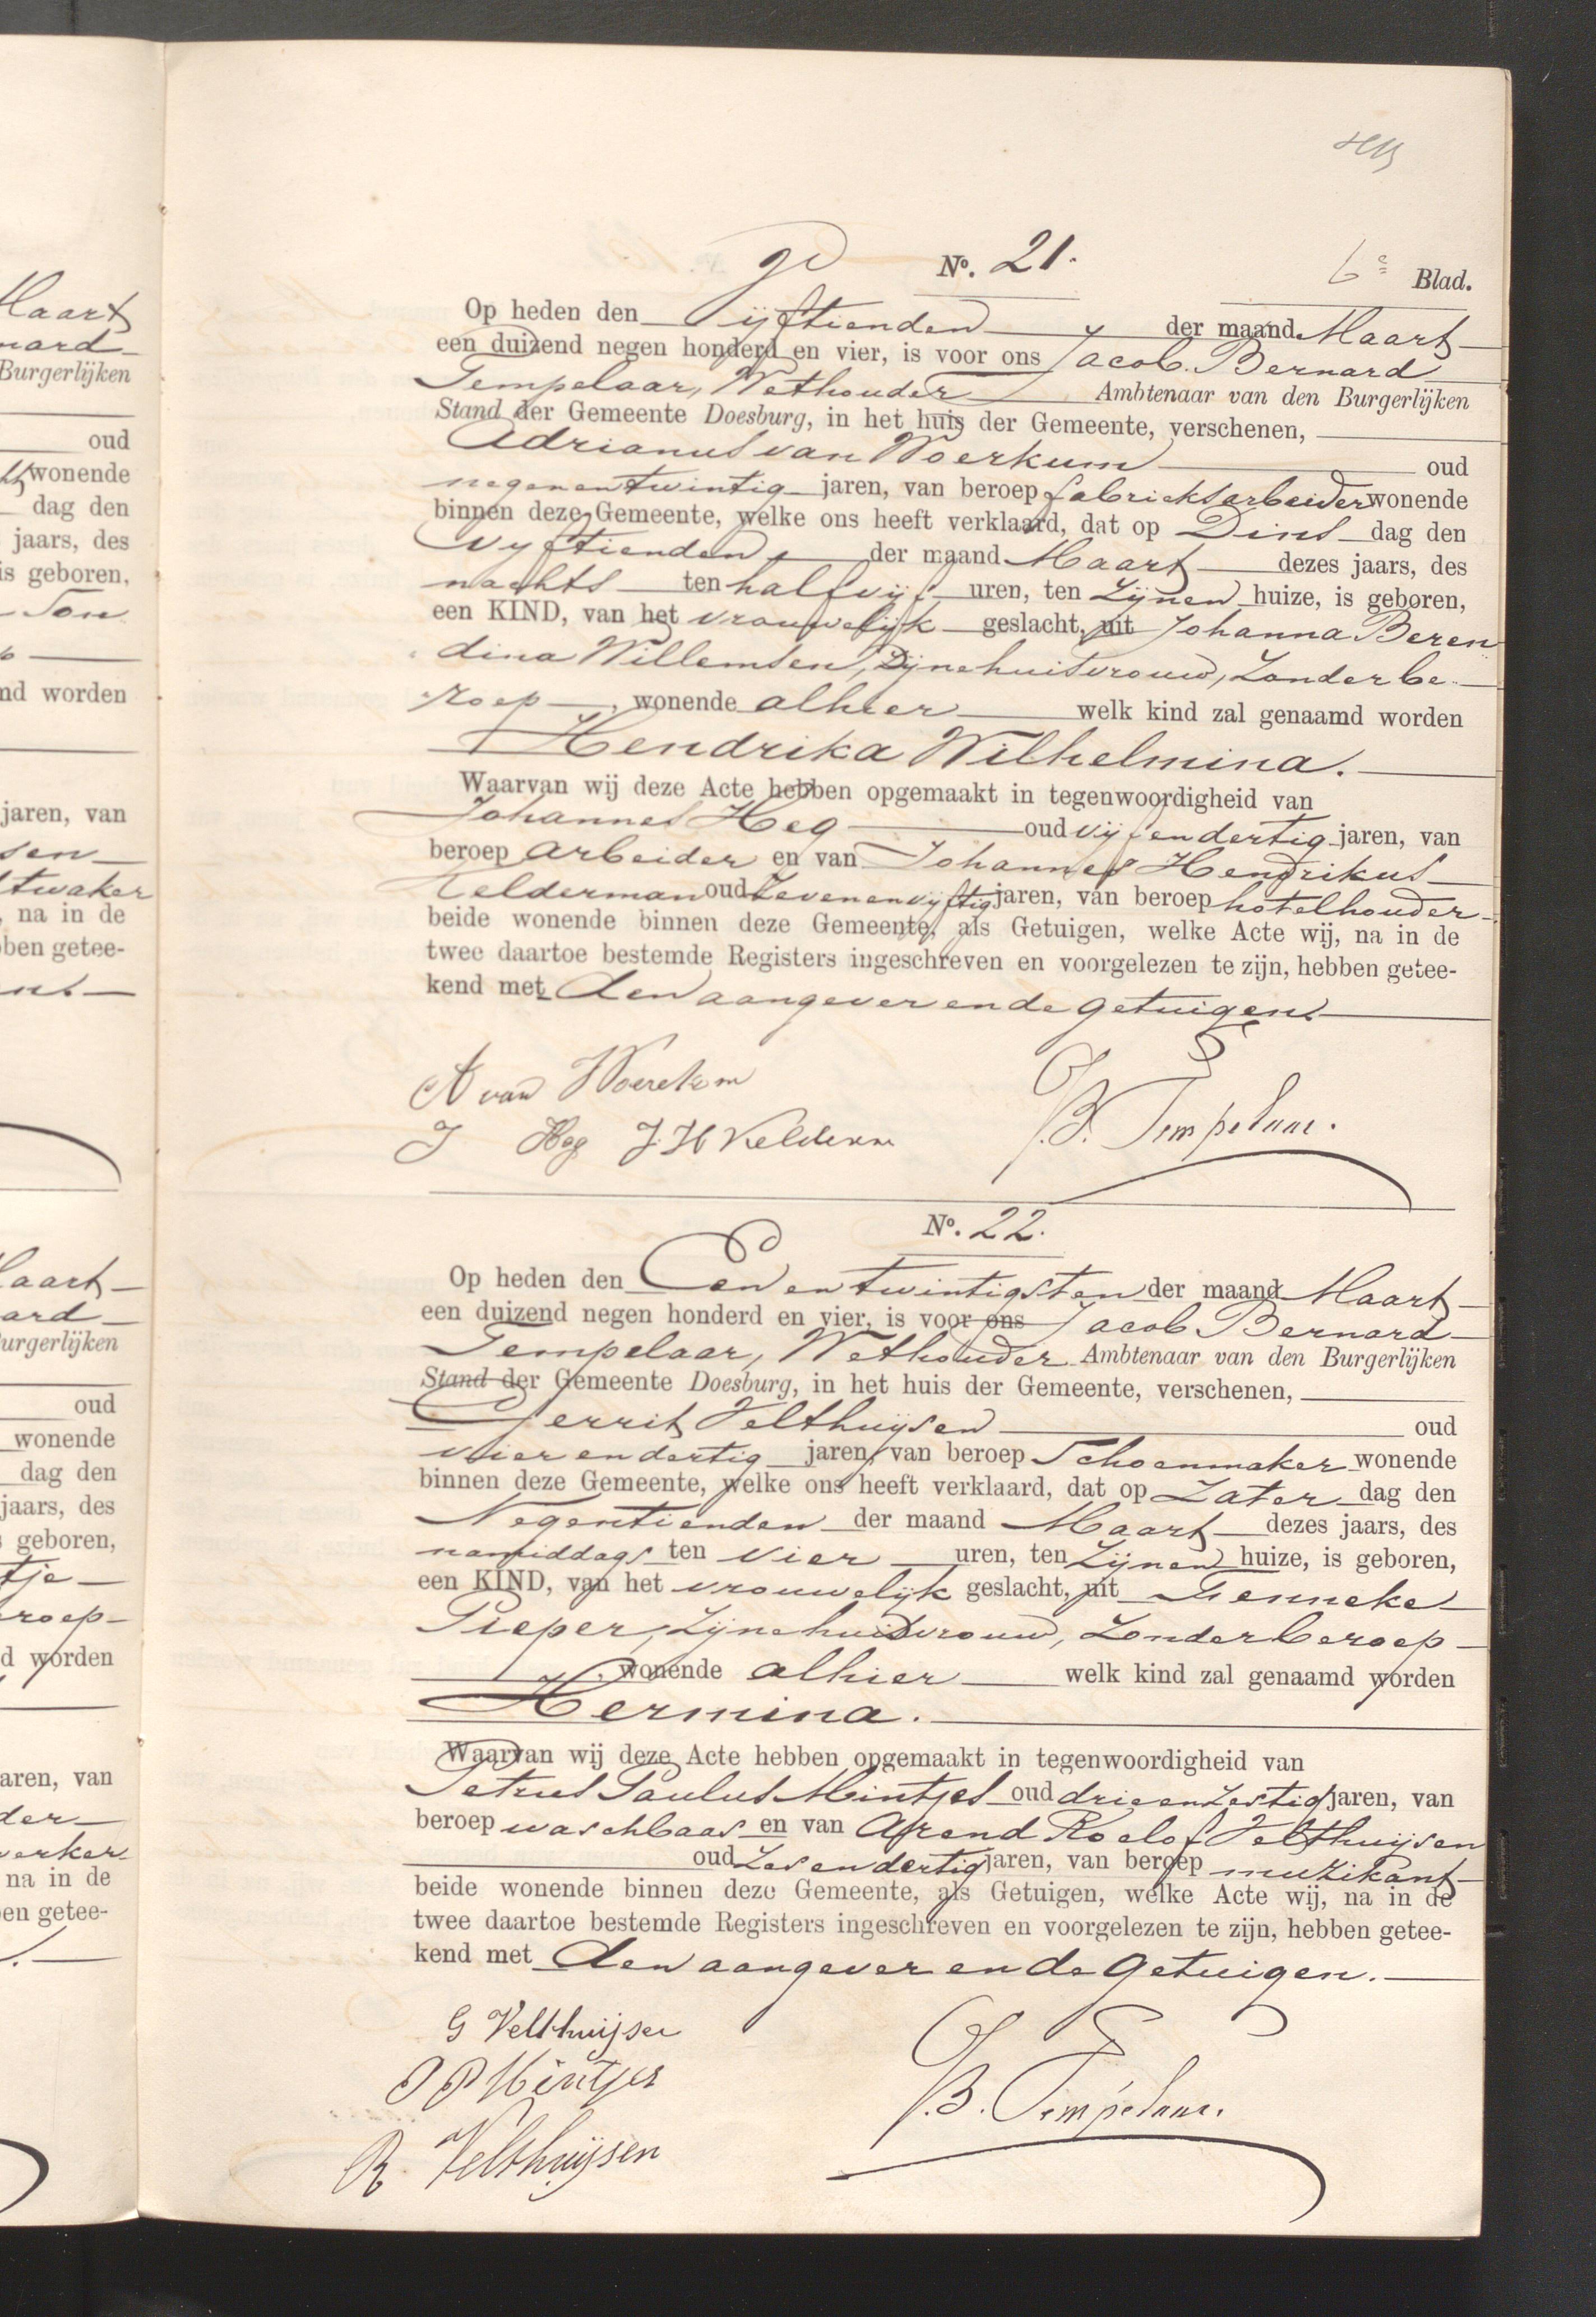 Maart
nard
Burgerlijken
oud
wonende
dag den
jaars, des
is geboren,
Ton
nd worden
jaren, van
sen
twaker
, na in de
bben getee-
laart
ard
urgerlijken
oud
wonende
dag den
jaars, des
geboren,
tje
roep
d worden
aren, van
der
werker
na in de
en getee-
No. 21.
6e Blad.
Op heden den Vijftienden der maand Maart
een duizend negen honderd en vier, is voor ons Jacob Bernard
Tempelaar, Wethouder Ambtenaar van den Burgerlijken
Stand der Gemeente Doesburg, in het huis der Gemeente, verschenen,
Adrianus van Woerkum oud
negenentwintig jaren, van beroep fabrieksarbeider wonende
binnen deze Gemeente, welke ons heeft verklaard, dat op Dins dag den
Vijftienden der maand Maart dezes jaars, des
nachts ten half vijf uren, ten Zijnen huize, is geboren,
een KIND, van het vrouwelijk geslacht, uit Johanna Beren
dina Willemsen, Zijne huisvrouw, Zonder be-
roep, wonende alhier welk kind zal genaamd worden
Hendrika Wilhelmina.
Waarvan wij deze Acte hebben opgemaakt in tegenwoordigheid van
Johannes Heg oud vijfendertig jaren, van
beroep arbeider en van Johannes Hendrikus
Kelderman oud Zevenenvijftig jaren, van beroep hotelhouder
beide wonende binnen deze Gemeente, als Getuigen, welke Acte wij, na in de
twee daartoe bestemde Registers ingeschreven en voorgelezen te zijn, hebben getee-
kend met den aangever en de getuigen.
A van Woerekom
J Heg J. H Kelderm
J.B. Tempelaar.
No. 22.
Op heden den Een en twintigsten der maand Maart
een duizend negen honderd en vier, is voor ons Jacob Bernard
Tempelaar, Wethouder Ambtenaar van den Burgerlijken
Stand der Gemeente Doesburg, in het huis der Gemeente, verschenen,
Gerrit Velthuijsen oud
vier en dertig jaren, van beroep Schoenmaker wonende
binnen deze Gemeente, welke ons heeft verklaard, dat op Zater dag den
Negentienden der maand Maart dezes jaars, des
namiddags ten vier uren, ten Zijnen huize, is geboren,
een KIND, van het vrouwelijk geslacht, uit Fenneke
Pieper, Zijne huisvrouw, Zonder beroep
, wonende alhier welk kind zal genaamd worden
Hermina.
Waarvan wij deze Acte hebben opgemaakt in tegenwoordigheid van
Petrus Paulus Mintjes oud drie en Zestig jaren, van
beroep waschbaas en van Arend Roelof Velthuijsen
oud Zes en dertig jaren, van beroep muzikant
beide wonende binnen deze Gemeente, als Getuigen, welke Acte wij, na in de
twee daartoe bestemde Registers ingeschreven en voorgelezen te zijn, hebben getee-
kend met den aangever en de getuigen.
G Velthuijsen
P P Mintjes
R. Velthuijsen
J.B. Tempelaar.